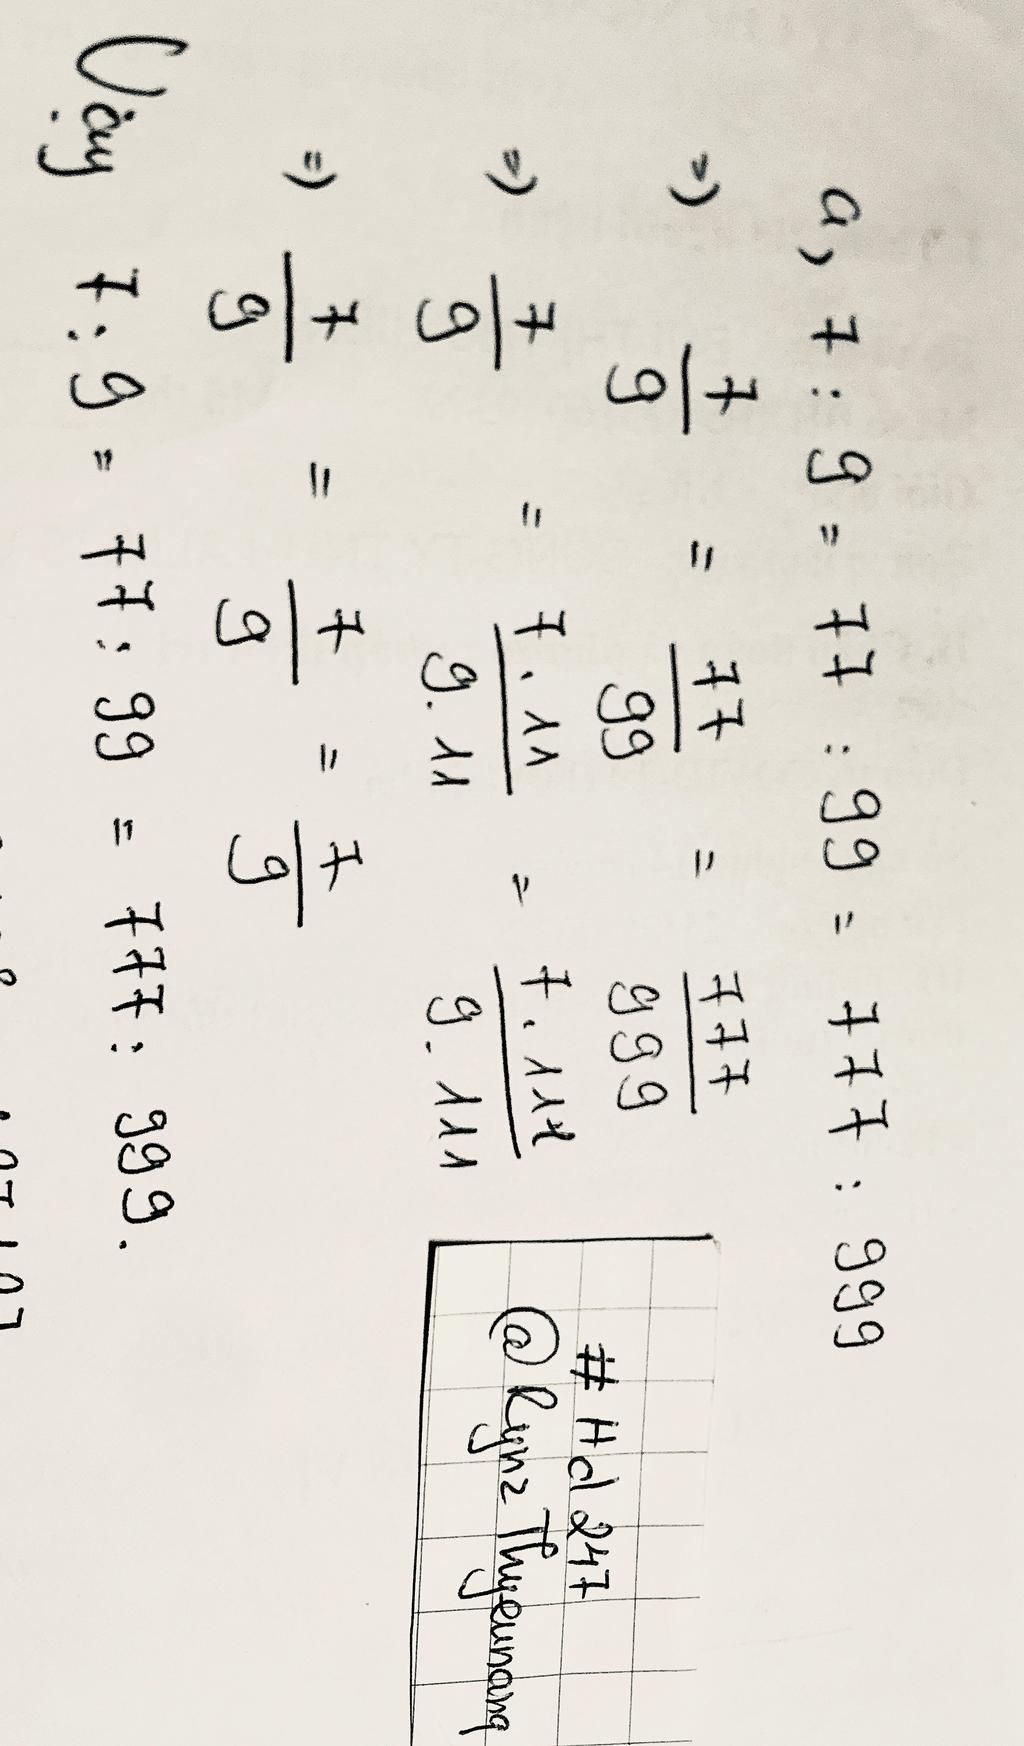 a) 7 : 9 = 77 : 99 = 777 : 999
=) 7/9 = 77/99 = 777/999
=) 7/9 = 7.11/9.11 = 7.111/9.111
=) 7/9 = 7/9 = 7/9
Vậy 7 : 9 = 77 : 99 = 777 : 999.
#Hd247
@Rynz Thyeunang